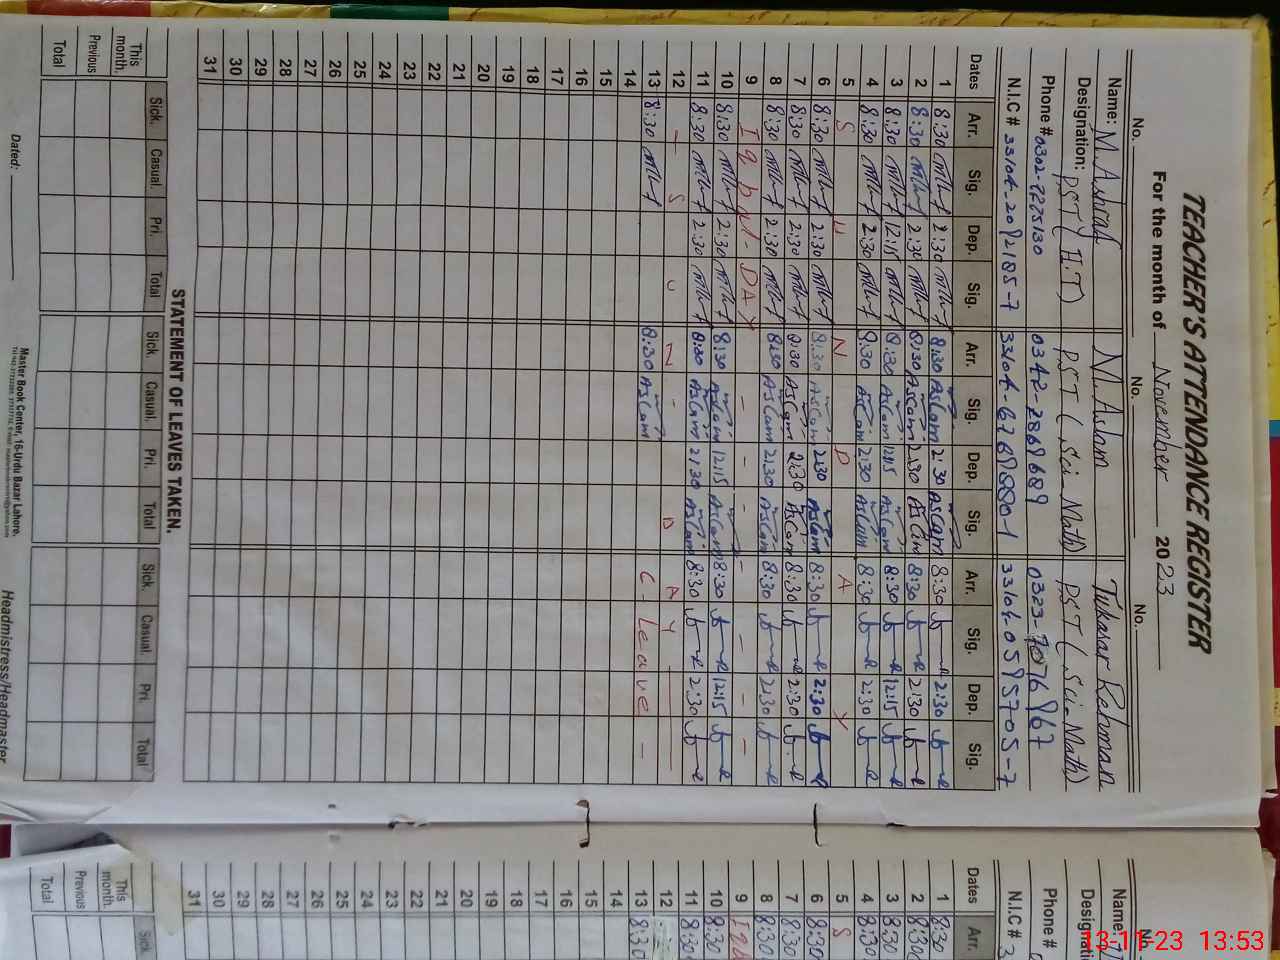 TEACHER'S ATTENDANCE REGISTER
For the month of November 2023
No. No. No.
Name: M. Ashraf M. Aslam Rehman
Designation: PST (H.T) PST (Sci Math) PST (Sci-Math)
Phone # 0302-7275130 0342-2869689 0323-7076967
N.I.C #
Dates Arr. Sig. Dep. Sig. Arr. Sig. Dep. Sig. Arr. Sig. Dep. Sig.
1 8:30 2:30 8:30 Aslam 2:30 Aslam 8:30 2:30
2 8:30 2:30 8:30 Aslam 2:30 Aslam 8:30 2:30
3 8:30 12:15 8:30 Aslam 12:15 Aslam 8:30 12:15
4 8:30 2:30 8:30 Aslam 2:30 Aslam 8:30 2:30
5 S U N D A Y
6 8:30 2:30 8:30 Aslam 2:30 Aslam 8:30 2:30
7 8:30 2:30 8:30 Aslam 2:30 Aslam 8:30 2:30
8 8:30 2:30 8:30 Aslam 2:30 Aslam 8:30 2:30
9 Iqbal - DAY - - - - - - -
10 8:30 2:30 8:30 Aslam 12:15 Aslam 8:30 12:15
11 8:30 2:30 8:30 Aslam 2:30 Aslam 8:30 2:30
12 - S U N - D A Y
13 8:30 8:30 Aslam C - Leave -
14
15
16
17
18
19
20
21
22
23
24
25
26
27
28
29
30
31
STATEMENT OF LEAVES TAKEN.
Sick. Casual. Pri. Total Sick. Casual. Pri. Total Sick. Casual. Pri. Total
This month.
Previous
Total
Dated:
Master Book Center, 16-Urdu Bazar Lahore.
Headmistress/Headmaster
No.
Name:
Designati
Phone #
N.I.C # 3
Dates Arr.
1 8:30
2 8:30
3 8:30
4 8:30
5 S
6 8:30
7 8:30
8 8:30
9 Iqb
10 8:30
11 8:30
12
13 8:30
14
15
16
17
18
19
20
21
22
23
24
25
26
27
28
29
30
31
Sick.
This month.
Previous
Total
13-11-23 13:53